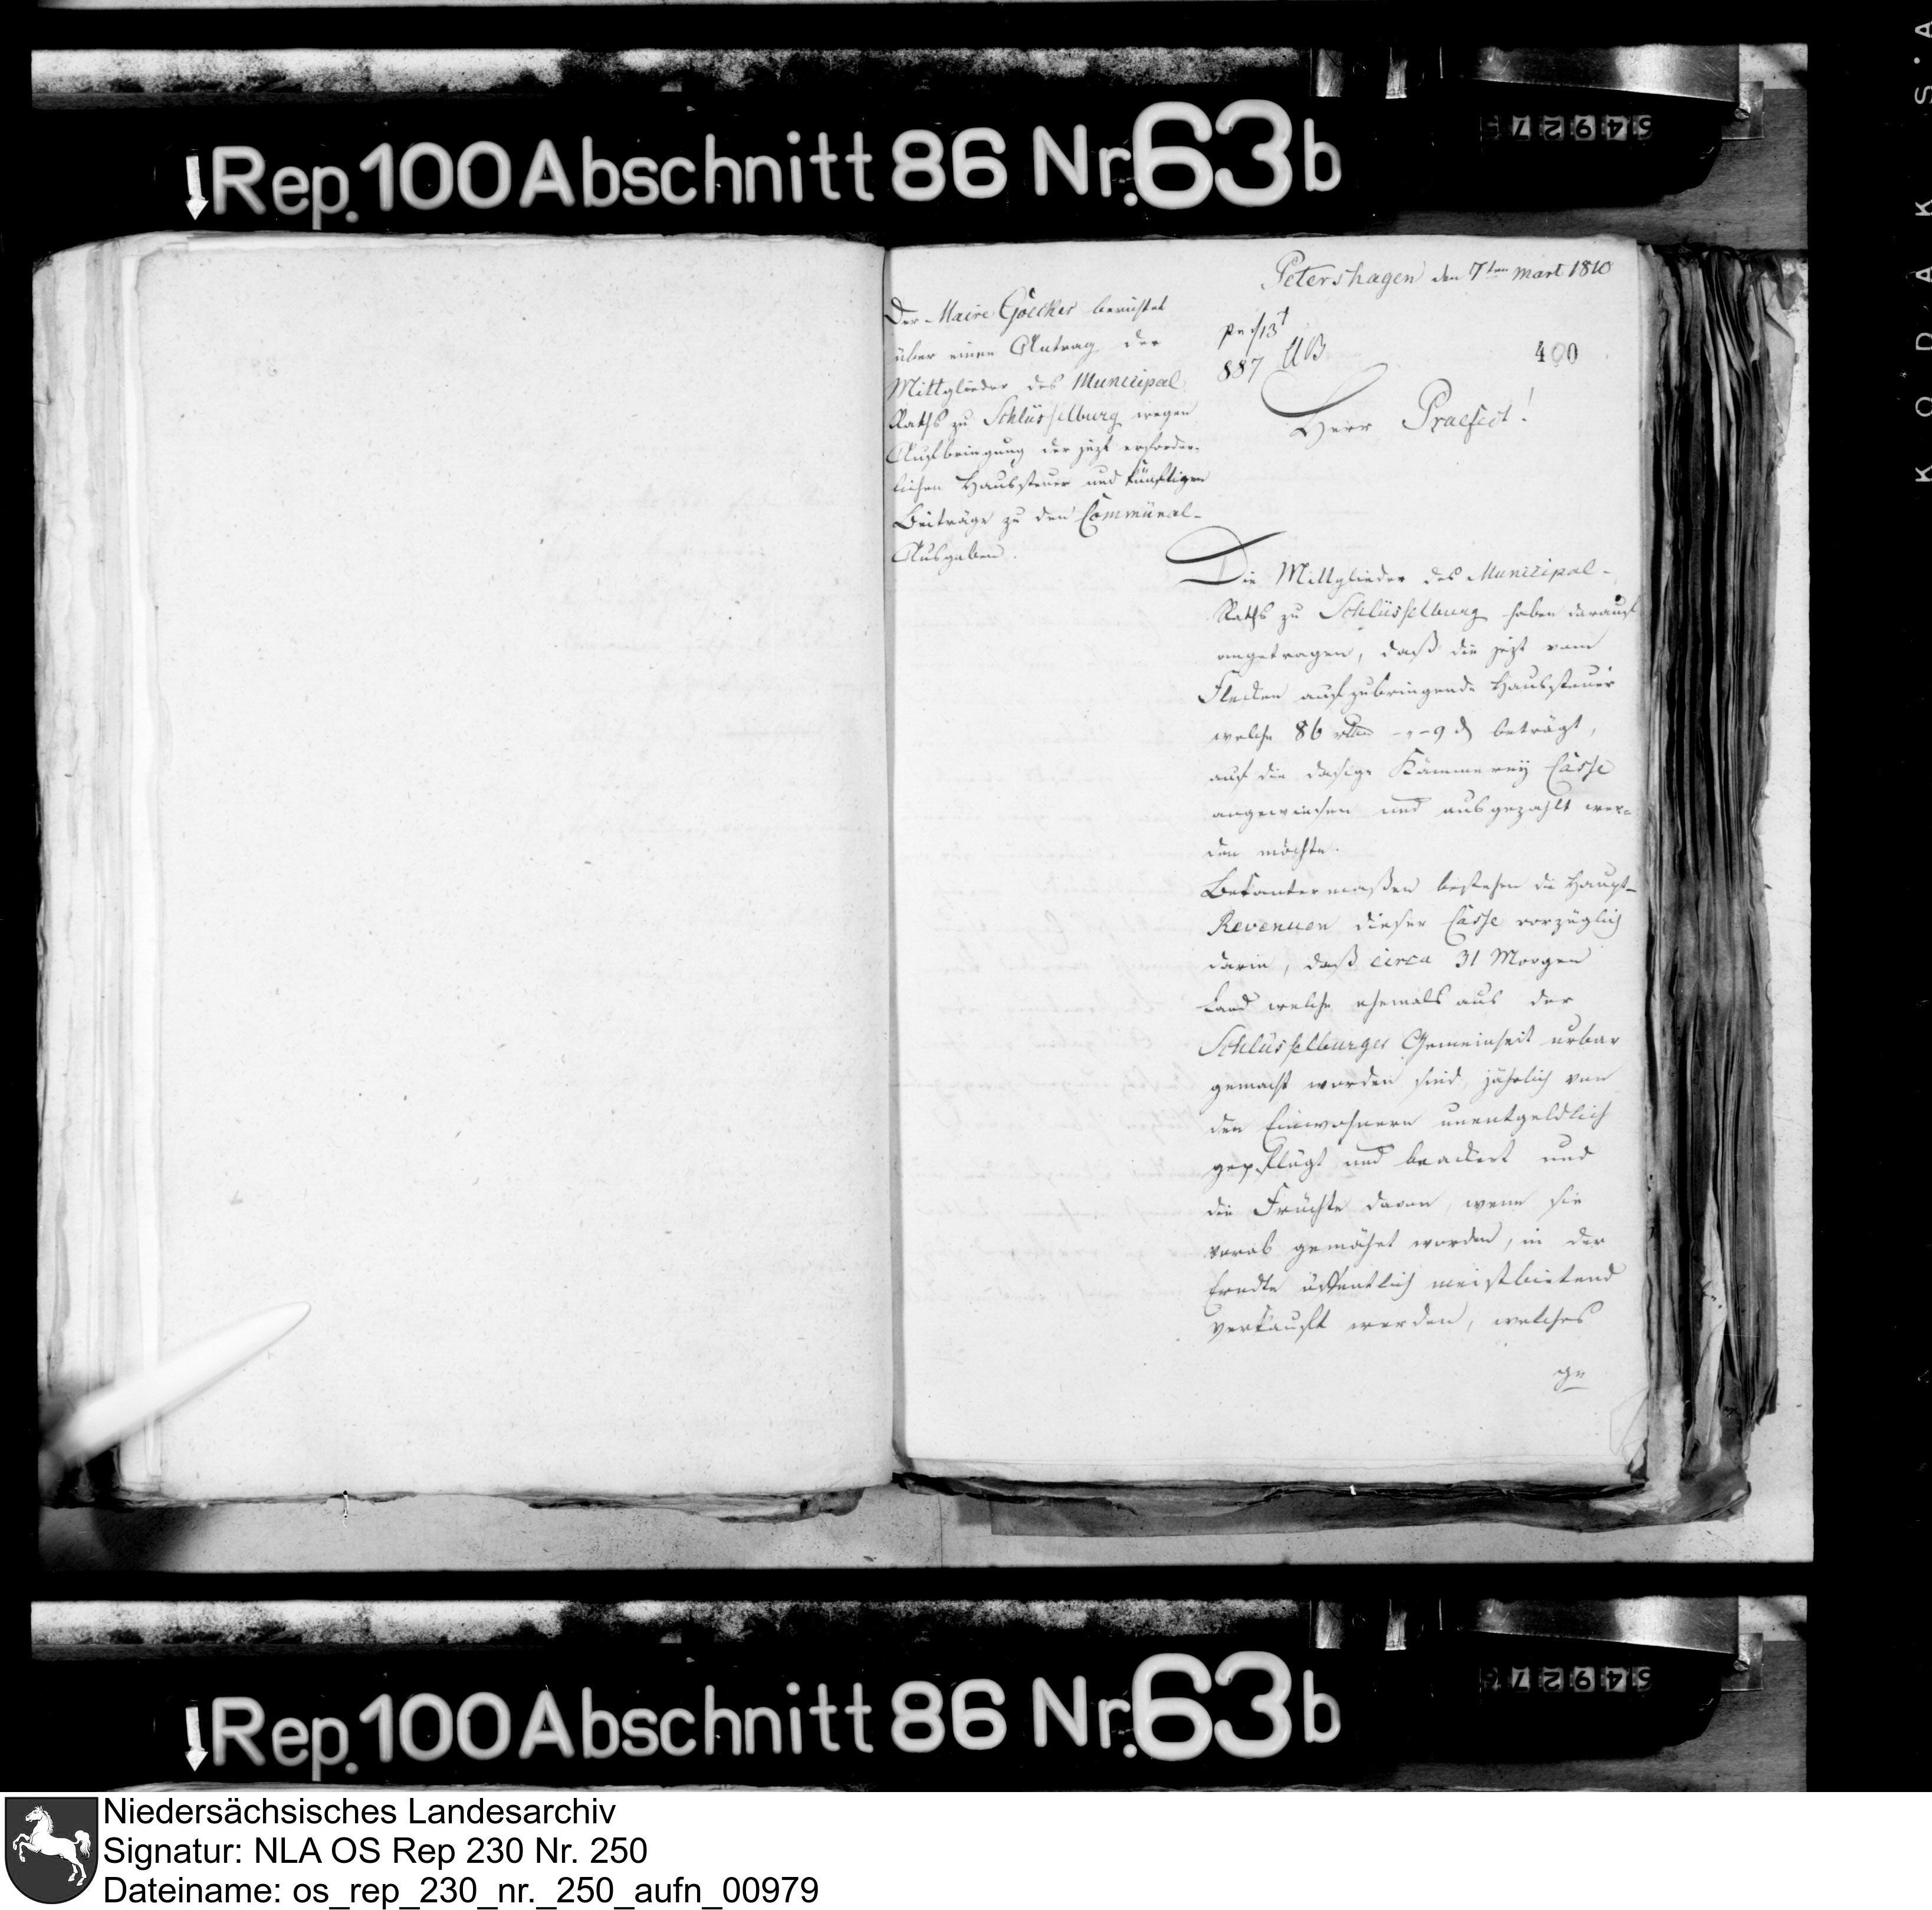 Rep. 100 Abschnitt 86 Nr. 63 b
54927
KODAK S·A
Petershagen den 7ten Mart 1810
400
887
Der Maire Goecker berichtet
über einen Antrag der
Mittglieder des Municipal
Raths zu Schlüsselburg wegen
Aufbringung der jezt erforder-
lichen Haussteuer und künftigen
Beiträge zu den Communal-
Ausgaben.
Herr Praefect!
Die Mittglieder des Municipal-
Raths zu Schlüsselburg haben darauf
angetragen, daß die jezt vom
Flecken aufzubringende Haussteuer
welche 86 rthlr - " - 9 d beträgt,
auf die dasige Kämmerey Casse
angewiesen und ausgezahlt wer-
den möchte.
Bekantermaßen bestehen die Haupt-
Revenuen dieser Casse vorzüglich
darin, daß circa 31 Morgen
Land welche ehemals aus der
Schlüsselburger Gemeinheit urbar
gemacht worden sind, jährlich von
den Einwohnern unentgeldlich
gepflügt und beackert und
die Früchte davon, wenn sie
vorab gemähet worden, in der
Erndte öffentlich meistbietend
verkauft werden, welches
ge
Rep. 100 Abschnitt 86 Nr. 63 b
54927
Niedersächsisches Landesarchiv
Signatur: NLA OS Rep 230 Nr. 250
Dateiname: os_rep_230_nr._250_aufn_00979